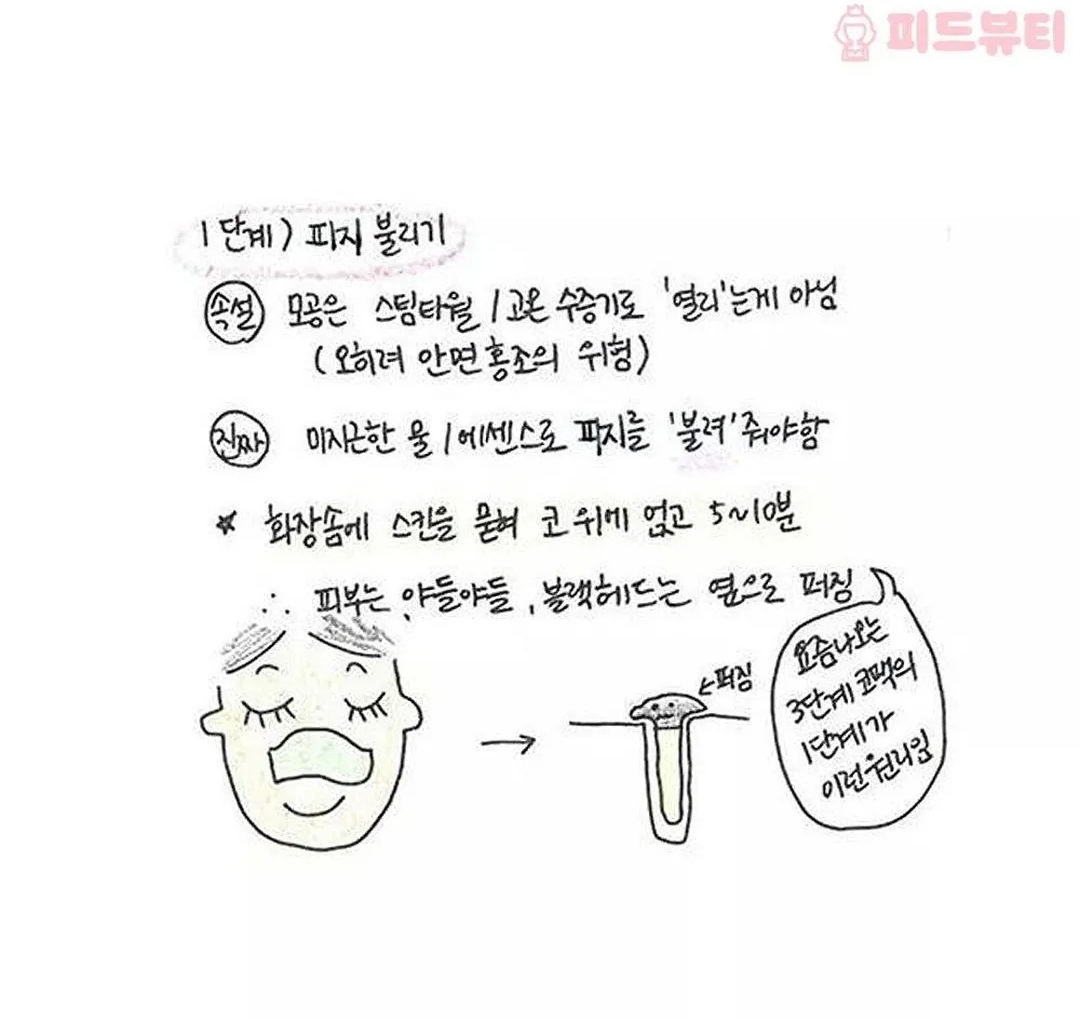 피드뷰티
1단계) 피지 불리기
속설 모공은 스팀타월 / 고온 수증기로 '열리'는게 아님
(오히려 안면홍조의 위험)
진짜 미지근한 물 / 에센스로 피지를 '불려'줘야함
★ 화장솜에 스킨을 묻혀 코 위에 얹고 5~10분
∴ 피부는 야들야들, 블랙헤드는 옆으로 퍼짐
←퍼짐
요즘나오는
3단계 코팩의
1단계가
이런원리임